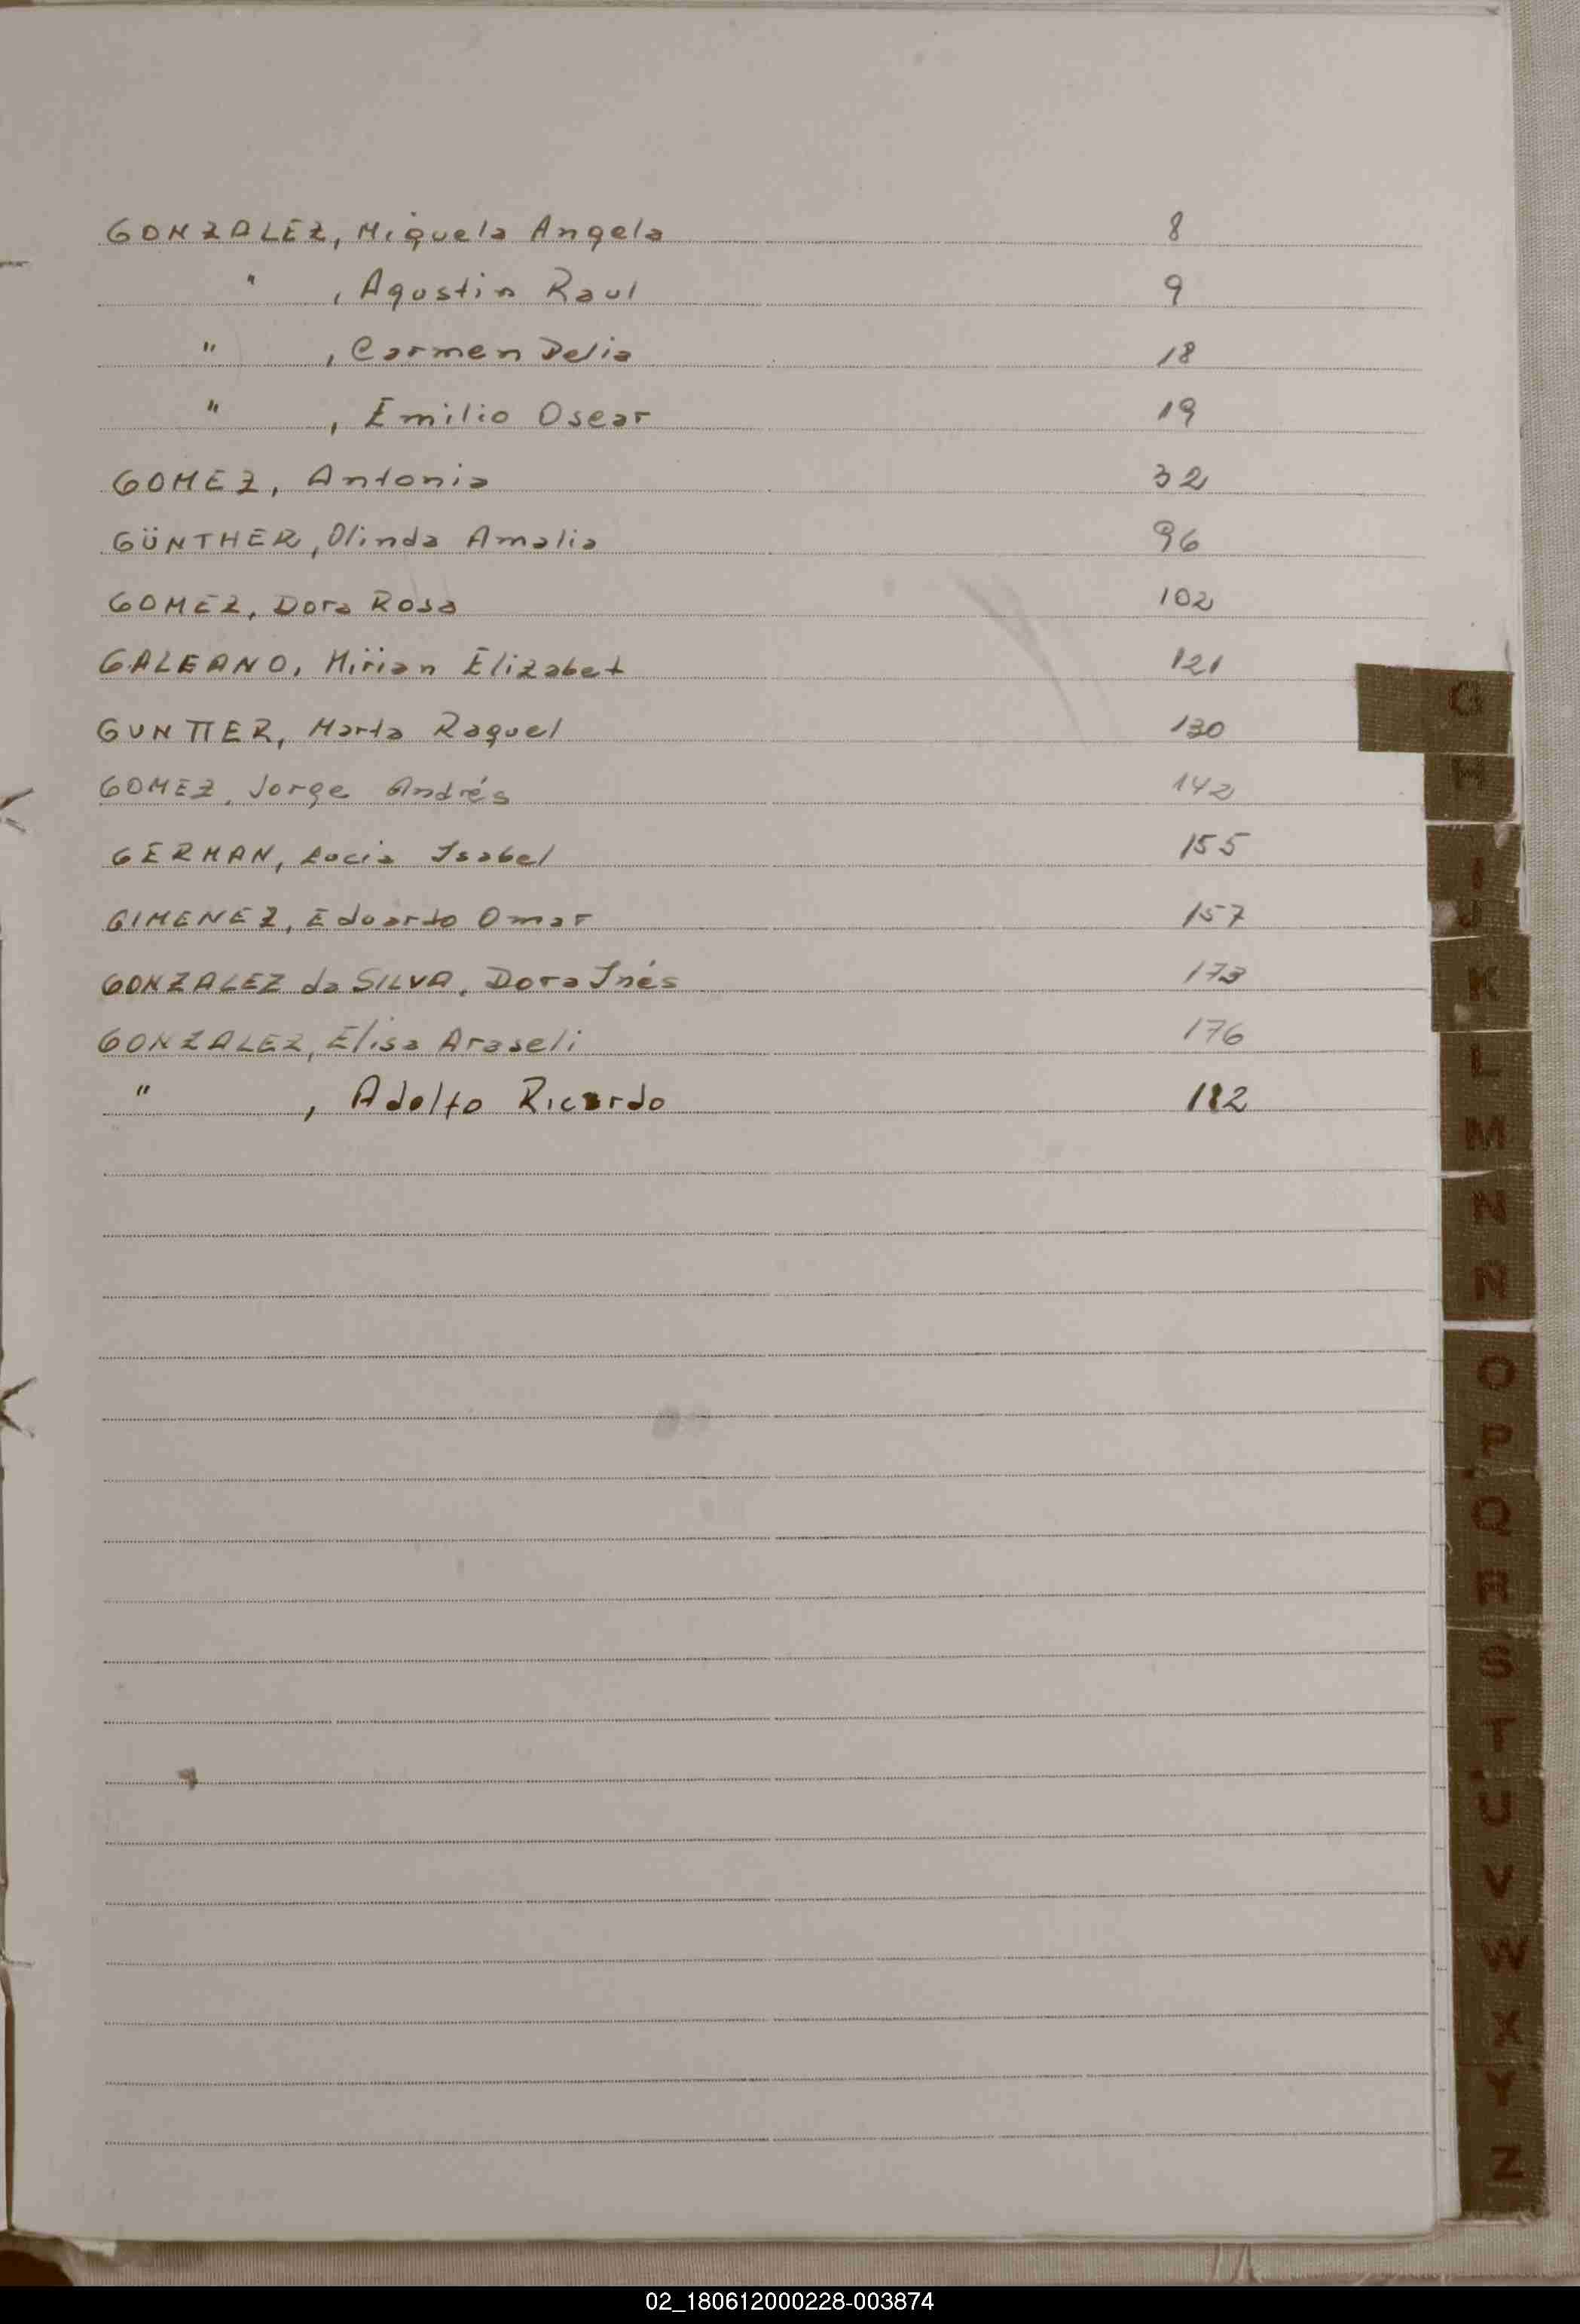 GONZALEZ, Miguela Angela 8
" , Agustin Raul 9
" , Carmen Delia 18
" , Emilio Oscar 19
GOMEZ, Antonia 32
GÜNTHER, Olinda Amalia 96
GOMEZ, Dora Rosa 102
GALEANO, Mirian Elizabet 121
GUNTTER, Marta Raquel 130
GOMEZ, Jorge Andrés 142
GERMAN, Lucia Isabel 155
GIMENEZ, Eduardo Omar 157
GONZALEZ da SILVA, Dora Inés 173
GONZALEZ, Elisa Araseli 176
" , Adolfo Ricardo 182
G
H
I
J
K
L
M
N
N
O
P
Q
R
S
T
U
V
W
X
Y
Z
02_180612000228-003874